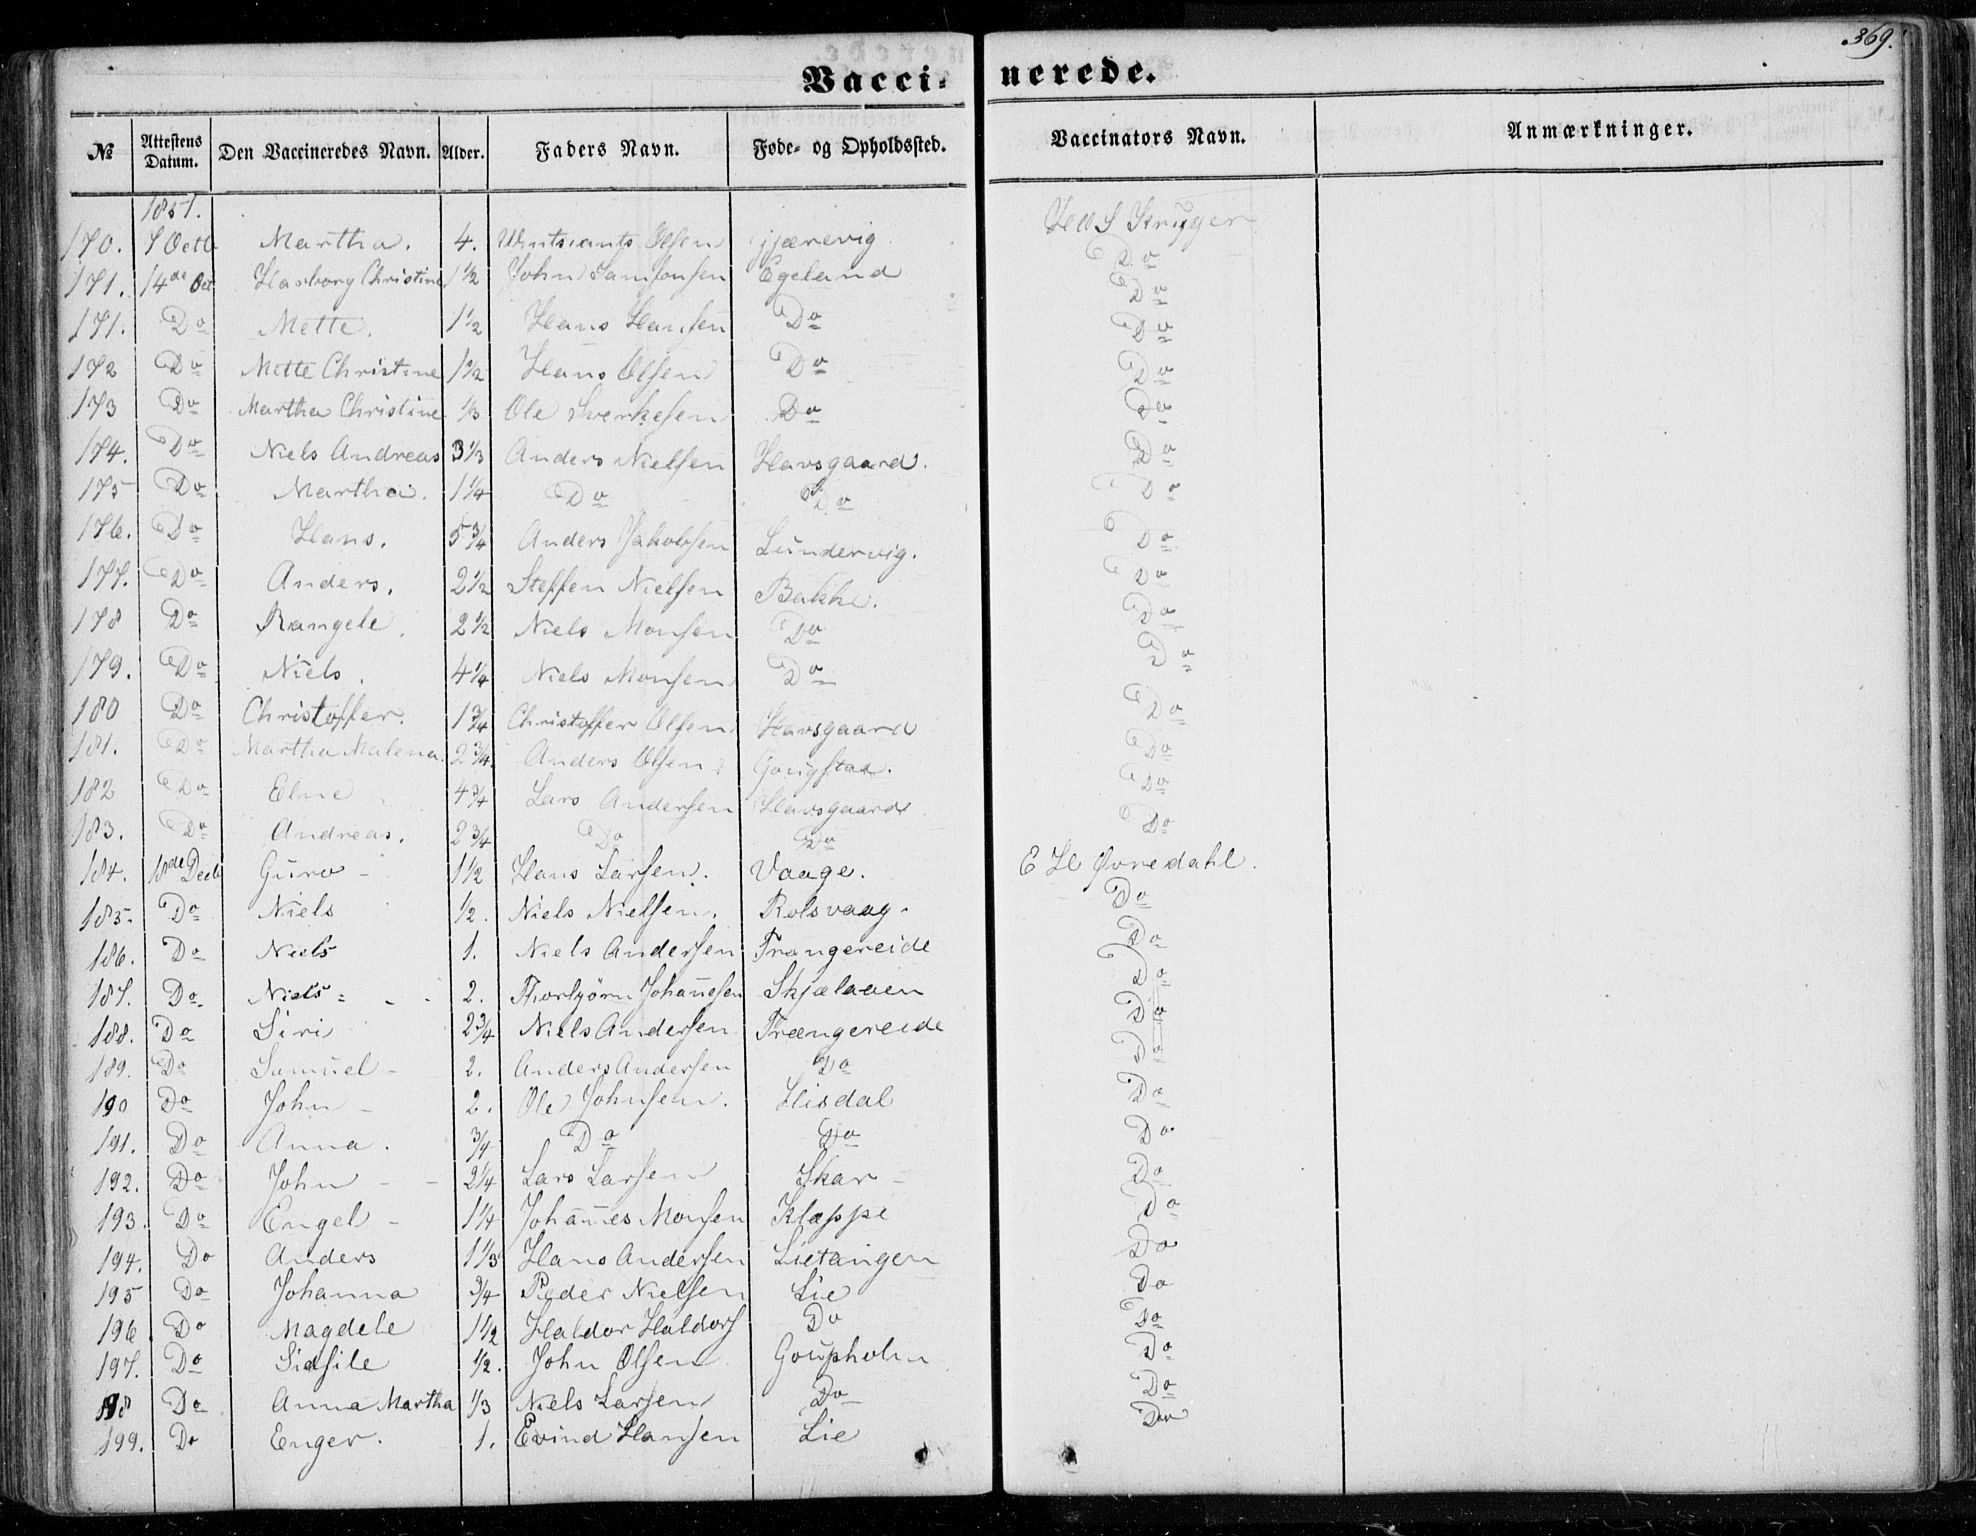 369.
Vacci- nerede.
№ Attestens Datum. Den Vaccineredes Navn. Alder. Faders Navn. Føde- og Opholdssted. Vaccinators Navn. Anmærkninger.
1851.
170. 7 Octb Martha. 4. Olsen gjærevig Krüger
171. 14de Oct Hasborg Christine 1 1/2 John Samsonsen Egeland Do
171. Do Mette. 1 1/2 Hans Hansen Do Do
172 Do Mette Christine 1 1/2 Hans Olsen Do Do
173 Do Martha Christine 1/3 Ole Sverkesen Do Do
174. Do Niels Andreas 3 1/3 Anders Nielsen Havsgaard. Do
175 Do Martha. 1 1/4 Do Do Do
176. Do Hans. 5 3/4 Anders Jakobsen Lundervig. Do
177. Do Anders. 2 1/2 Steffen Nielsen Bakke. Do
178 Do Rangele. 2 1/2 Niels Monsen Do Do
179. Do Niels. 4 1/4 Niels Monsen Do Do
180 Do Christoffer. 1 3/4 Christoffer Olsen Havsgaard Do
181. Do Martha Malena. 2 3/4 Anders Olsen Gougstad. Do
182 Do Elne 4 3/4 Lars Andersen Havsgaard Do
183. Do Andreas. 2 3/4 Do Do Do
184. 18de Decb Guro - 1 1/2 Hans Larsen. Vaage. E H Øvredahl.
185. Do Niels 1/2. Niels Nielsen. Rolsvaag. Do
186. Do Niels 1. Niels Andersen Trængereide Do
187. Do Niels 2. Thorbjørn Johañesen Skjelaaen Do
188. Do Siri 2 3/4 Niels Andersen Trængereide Do
189. Do Samuel - 2. Anders Andersen Do Do
190 Do John - 2. Ole Johnsen. Hisdal Do
191. Do Anna. 3/4 Do Do Do
192. Do John - - 2 1/4 Lars Larsen Skar - Do
193. Do Engel - 1 1/4 Johañes Monsen Kleppe Do
194. Do Anders 1 1/3 Hans Andersen Lietangen Do
195 Do Johanna 3/4 Peder Nielsen Lie Do
196 Do Magdele 1 1/2 Haldor Haldors Do Do
197. Do Sidsile 1/2. John Olsen Goupholm Do
198 Do Anna Martha 1/3 Niels Larsen Do Do
199. Do Enger. 1. Evind Hansen Lie Do